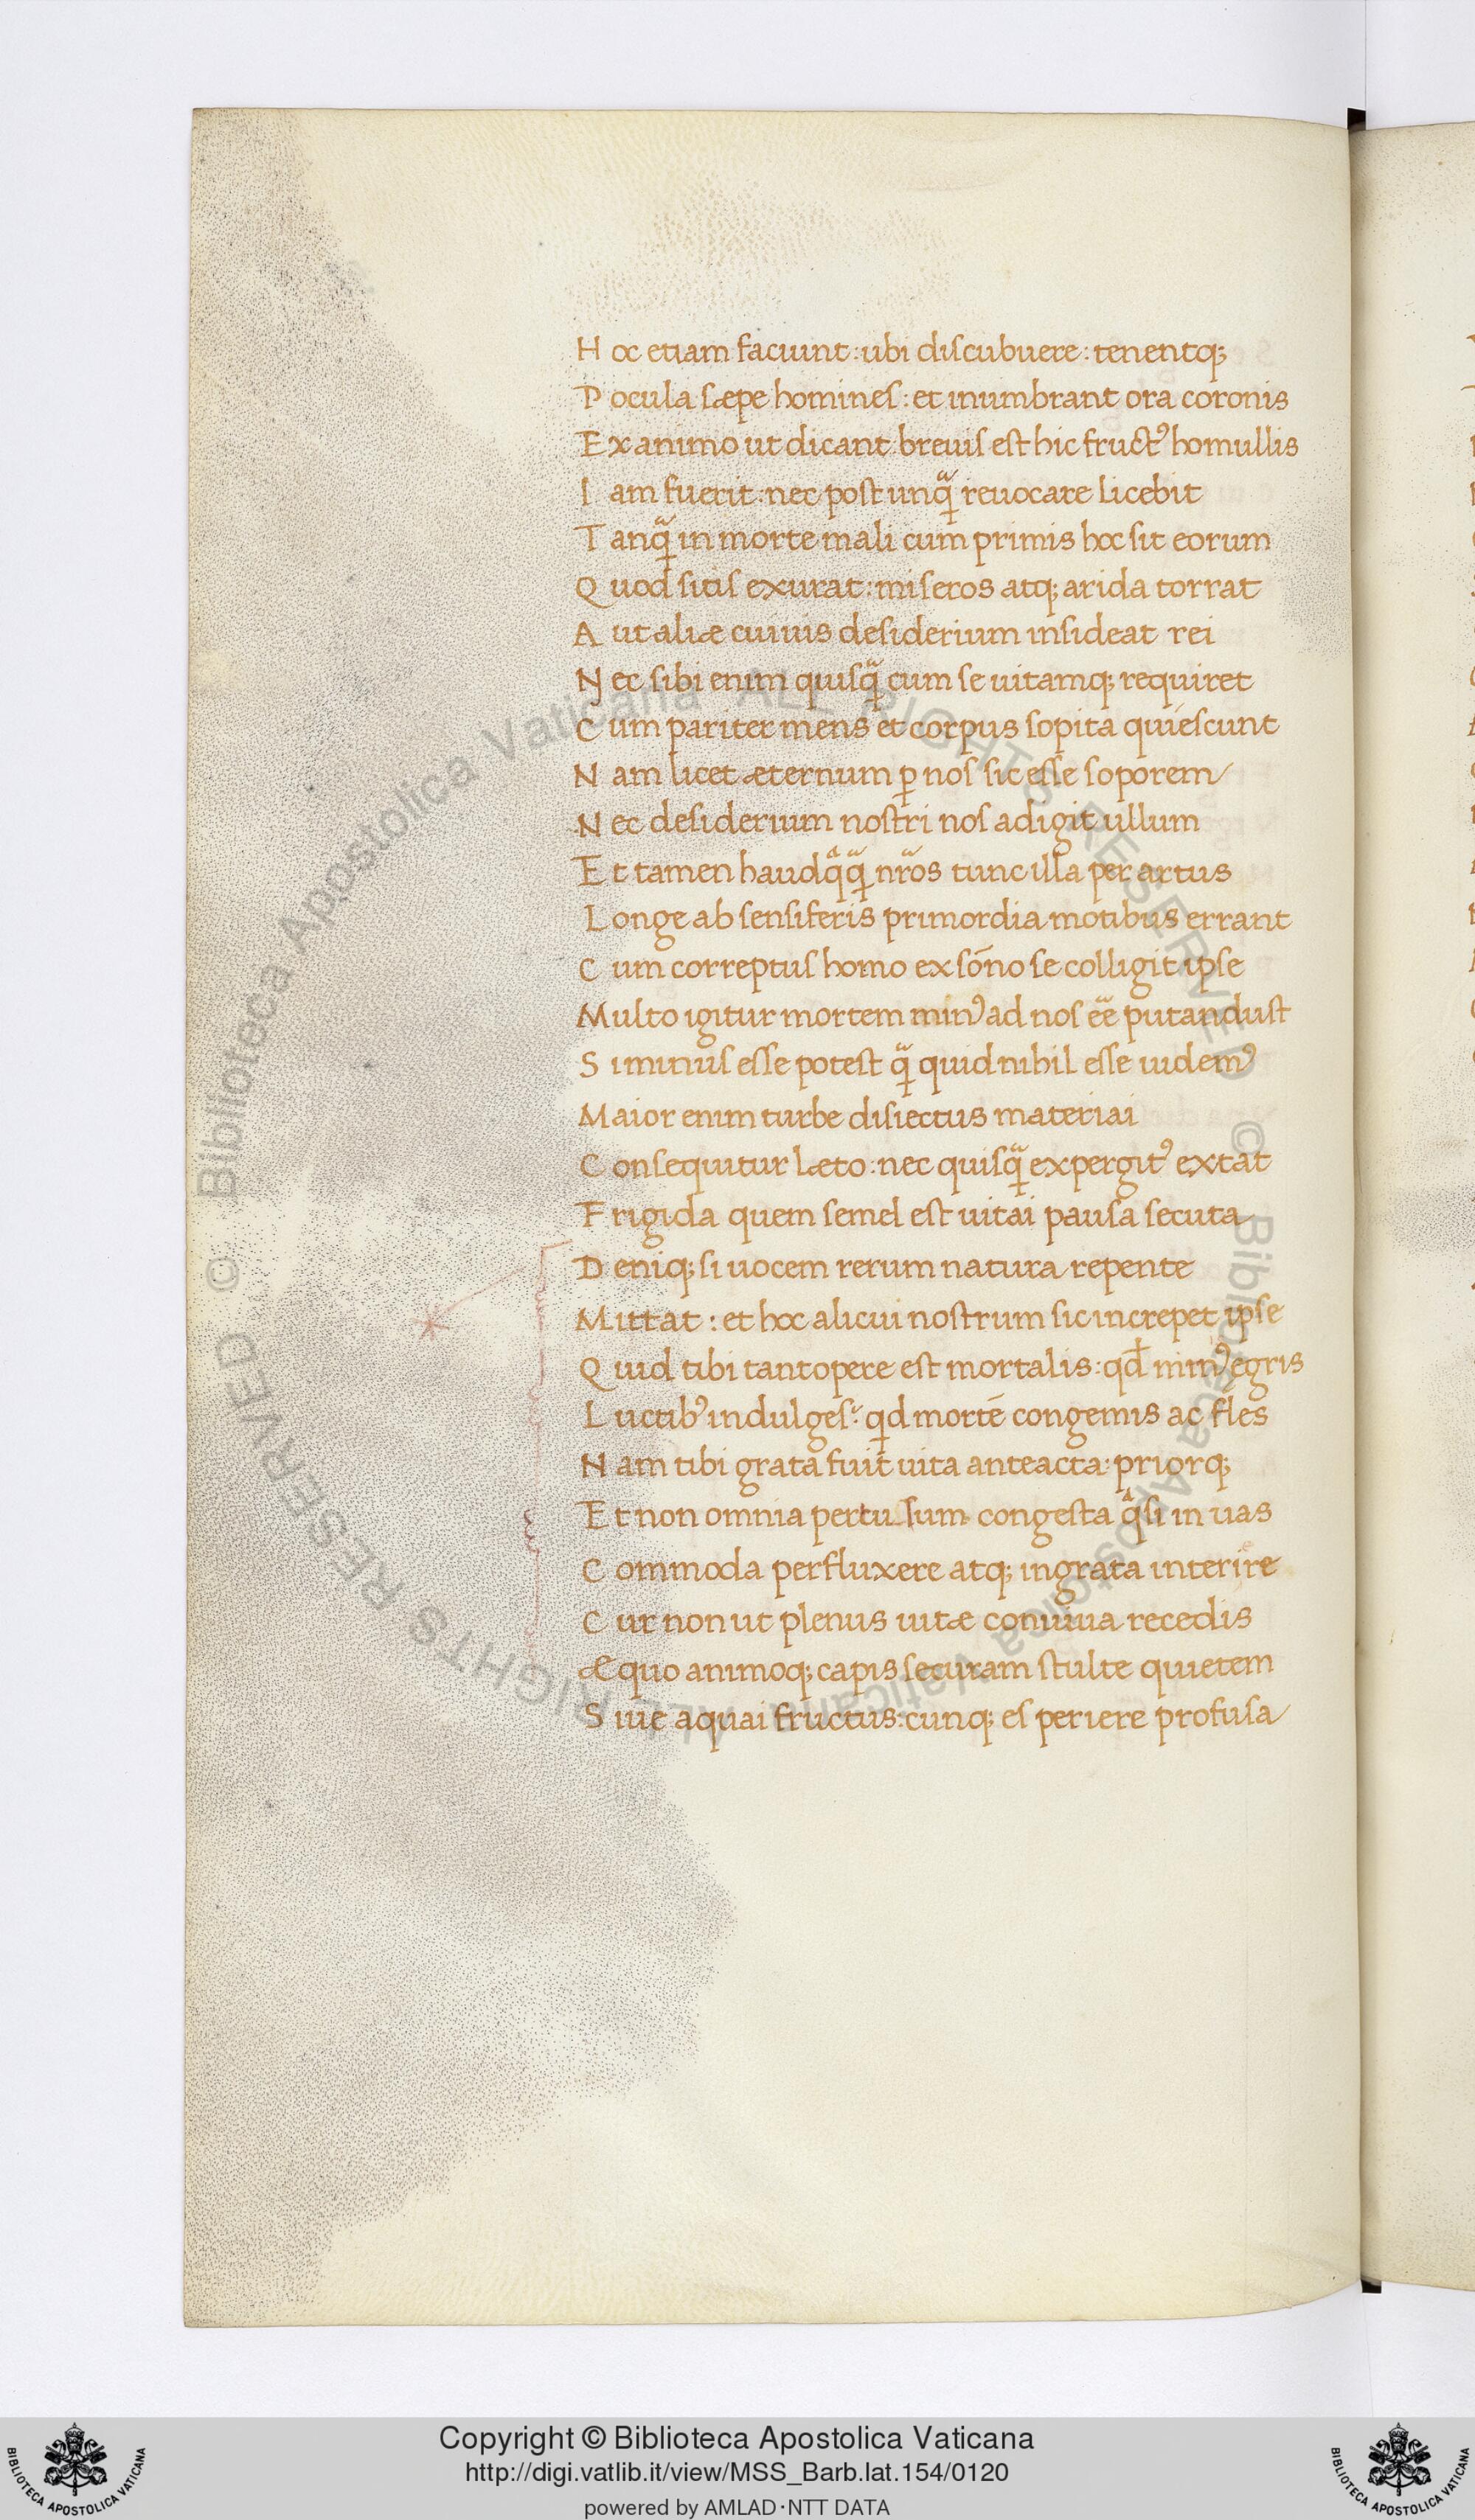 H oc etiam faciunt: ubi discubuere: tenentq;
P ocula sæpe homines: et inumbrant ora coronis
E x animo ut dicant: breuis est hic fructꝰ homullis
I am fuerit: nec post unq̃ reuocare licebit
T anq̃ in morte mali cum primis hoc sit eorum
Q uod sitis exurat: miseros atq; arida torrat
A ut aliæ cuiuis desiderium insideat rei
N ec sibi enim quisq̃ cum se uitamq; requiret
C um pariter mens et corpus sopita quiescunt
N am licet æternum ꝑ nos sic esse soporem
N ec desiderium nostri nos adigit ullum
E t tamen haudq̃q̃ nr̃os tunc illa per artus
L onge ab sensiferis primordia motibus errant
C um correptus homo ex sõno se colligit ipse
M ulto igitur mortem minꝰ ad nos ẽe putandust
S i minus esse potest q̃ quid nihil esse uidemꝰ
M aior enim turbe disiectus materiai
C onsequitur læto: nec quisq̃ expergitꝰ extat
F rigida quem semel est uitai pausa secuta
D eniq; si uocem rerum natura repente
M ittat: et hoc alicui nostrum sic increpet ipse
Q uid tibi tantopere est mortalis: qđ nimꝰ egris
L uctibꝰ indulges: qd mortē congemis ac fles
N am tibi grata fuit uita anteacta: priorq;
E t non omnia pertusum congesta q̃si in uas
C ommoda perfluxere atq; ingrata interire
C ur non ut plenus uitæ conuiua recedis
Æ quo animoq; capis securam stulte quietem
S iue aquai fructus: cunq; es periere profusa
© Biblioteca Apostolica Vaticana ALL RIGHTS RESERVED © Biblioteca Apostolica Vaticana ALL RIGHTS RESERVED
Copyright © Biblioteca Apostolica Vaticana
http://digi.vatlib.it/view/MSS_Barb.lat.154/0120
powered by AMLAD·NTT DATA
BIBLIOTECA APOSTOLICA VATICANA
BIBLIOTECA APOSTOLICA VATICANA